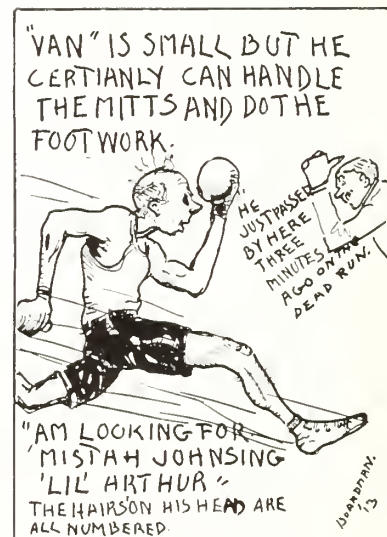 "VAN" IS SMALL BUT HE
CERTIANLY CAN HANDLE
THE MITTS AND DO THE
FOOTWORK.
"HE
JUST PASSED
BY HERE
THREE
MINUTES
AGO ON THE
DEAD RUN.
"AM LOOKING FOR
'MISTAH JOHNSING
'LIL' ARTHUR"
THE HAIRS ON HIS HEAD ARE
ALL NUMBERED.
BOARDMAN.
'13